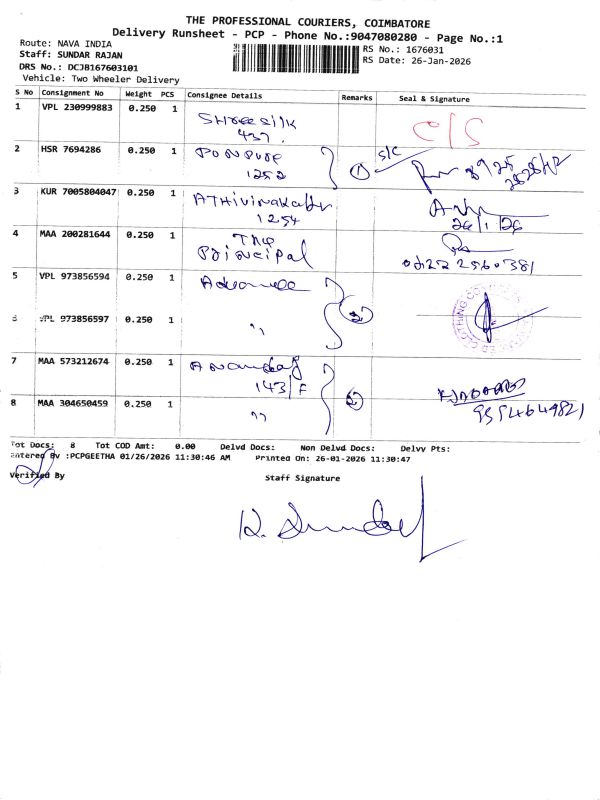 THE PROFESSIONAL COURIERS, COIMBATORE
Delivery Runsheet - PCP - Phone No.:9047080280 - Page No.:1
Route: NAVA INDIA
Staff: SUNDAR RAJAN
DRS No.: DCJB167603101
Vehicle: Two Wheeler Delivery
RS No.: 1676031
RS Date: 26-Jan-2026
S No Consignment No Weight PCS Consignee Details Remarks Seal & Signature
1 VPL 230999883 0.250 1 Shree Silk
437. C/S
2 HSR 7694286 0.250 1 s/c
1252 1
3 KUR 7005804047 0.250 1
1254 26/1/26
4 MAA 200281644 0.250 1 The
Principal 0422 2560381
5 VPL 973856594 0.250 1 Advance
6 VPL 973856597 0.250 1 "
7 MAA 573212674 0.250 1
143/F
8 MAA 304650459 0.250 1 "
Tot Docs: 8 Tot COD Amt: 0.00 Delvd Docs: Non Delvd Docs: Delvy Pts:
Entered By :PCPGEETHA 01/26/2026 11:30:46 AM Printed On: 26-01-2026 11:30:47
Verified By Staff Signature